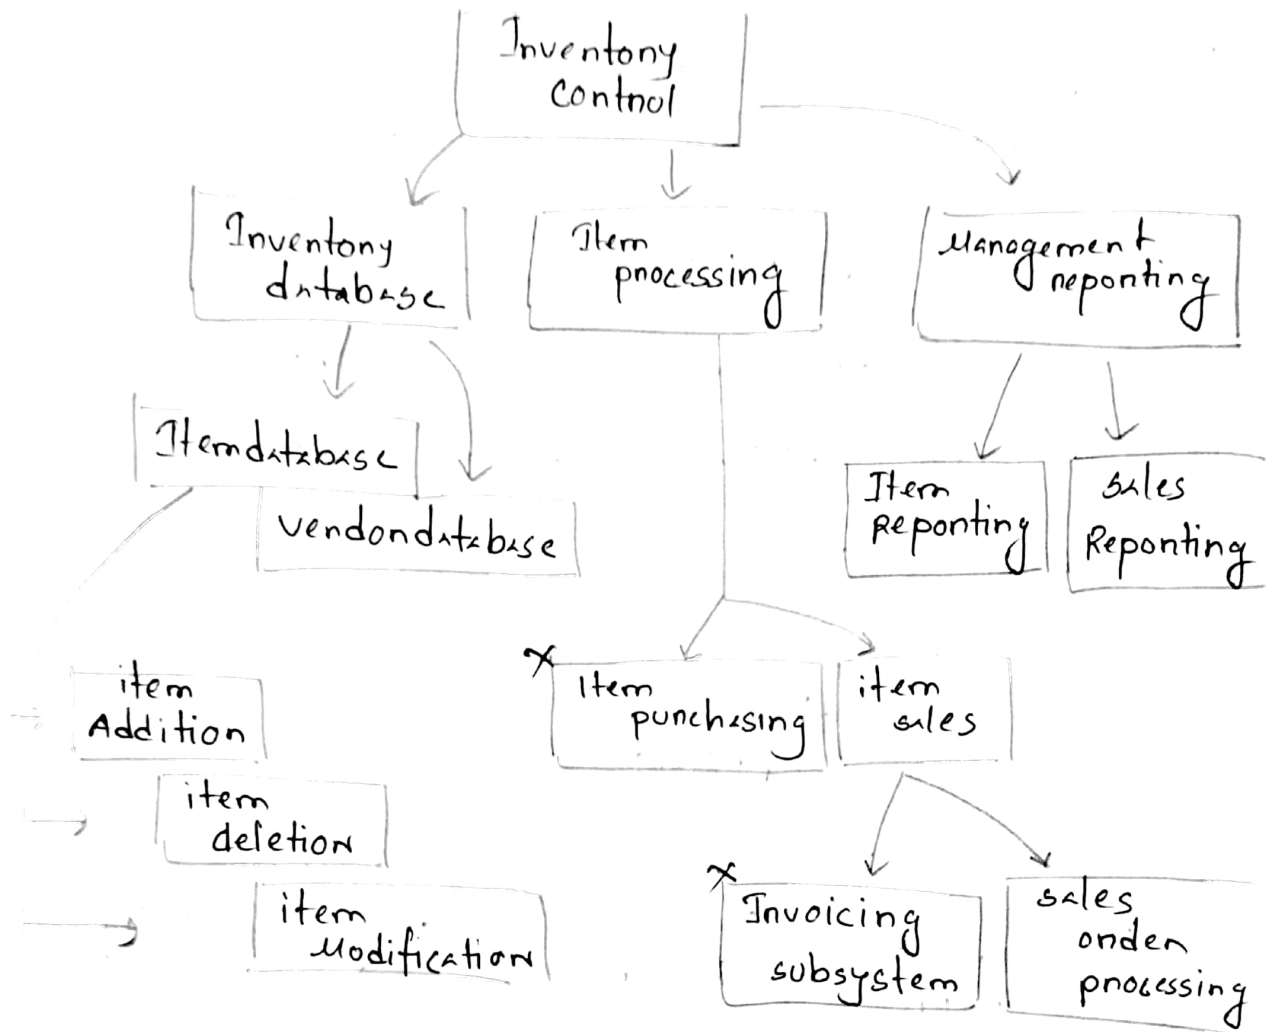 Inventory
control
Inventory
database
Item
processing
Management
reporting
Itemdatabase
vendordatabase
Item
Reporting
sales
Reporting
x
Item
purchasing
item
sales
item
Addition
item
deletion
item
Modification
x
Invoicing
subsystem
sales
order
processing